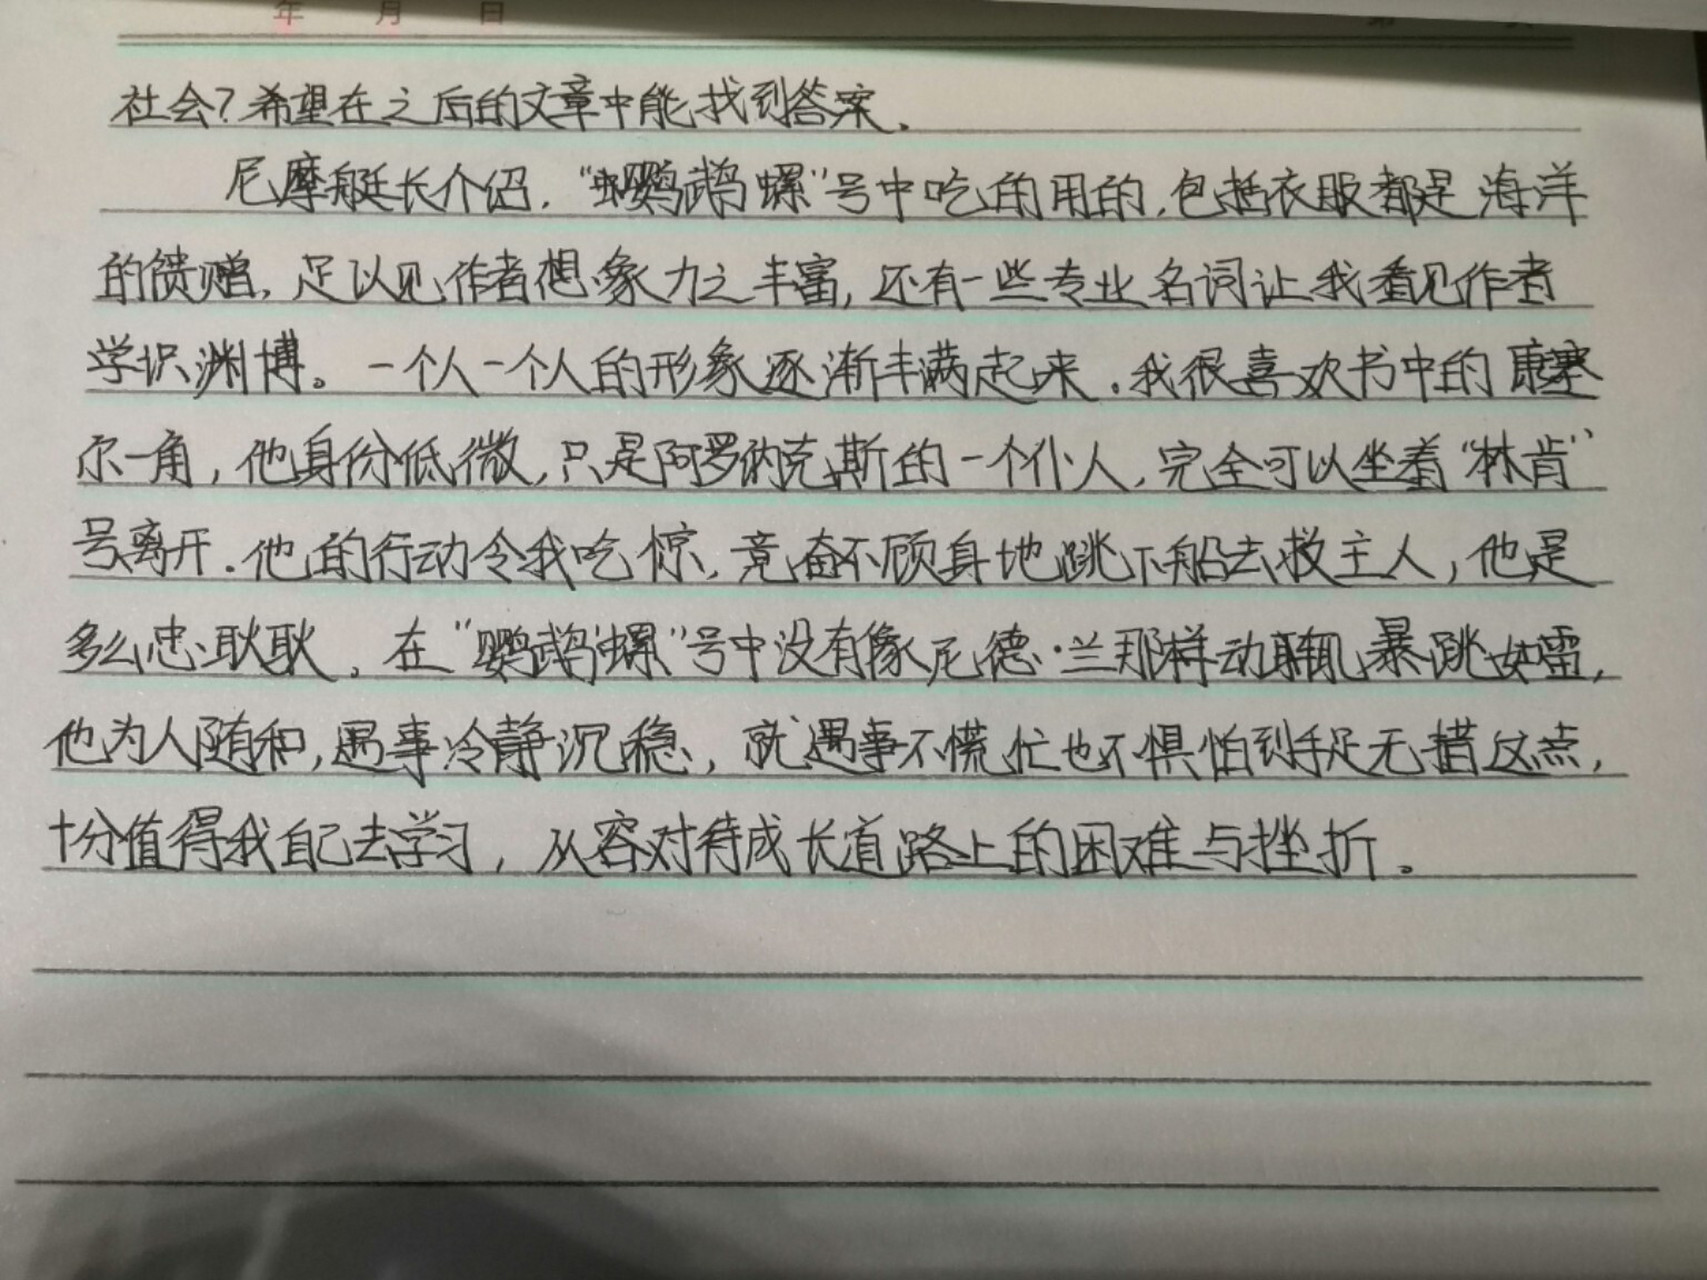 年 月 日
社会？希望在之后的文章中能找到答案.
尼摩艇长介绍."鹦鹉螺"号中吃的用的,包括衣服都是海洋
的馈赠,足以见作者想象力之丰富,还有一些专业名词让我看见作者
学识渊博。一个人一个人的形象逐渐丰满起来.我很喜欢书中的康塞
尔一角,他身份低微,只是阿罗纳克斯的一个仆人,完全可以坐着"林肯"
号离开.他的行动令我吃惊,竟奋不顾身地跳下船去救主人,他是
多么忠心耿耿。在"鹦鹉螺"号中没有像尼德·兰那样动辄暴跳如雷,
他为人随和,遇事冷静沉稳,就遇事不慌忙也不惧怕到手足无措这点,
十分值得我自己去学习,从容对待成长道路上的困难与挫折。